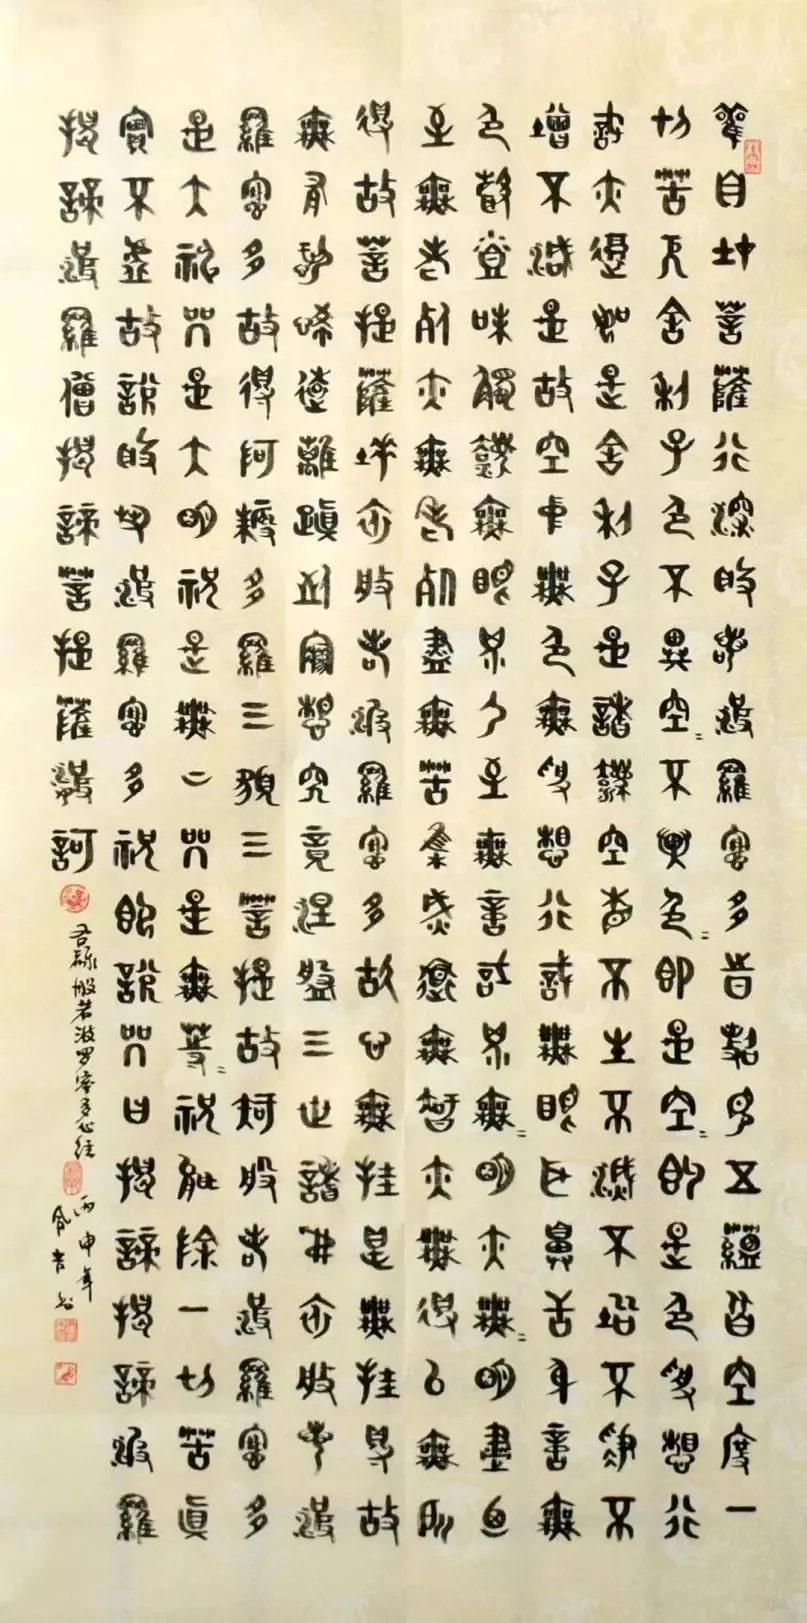 觀自在菩薩行深般若波羅蜜多時照見五蘊皆空度一
切苦厄舍利子色不異空=不異色=即是空=即是色受想行
識亦復如是舍利子是諸法空相不生不滅不垢不淨不
增不減是故空中無色無受想行識無眼耳鼻舌身意無
色聲香味觸法無眼界乃至無意識界無=明亦無=明盡乃
至無老死亦無老死盡無苦集滅道無智亦無得以無所
得故菩提薩埵依般若波羅蜜多故心無罣礙無罣礙故
無有恐怖遠離顛倒夢想究竟涅槃三世諸佛依般若波
羅蜜多故得阿耨多羅三藐三菩提故知般若波羅蜜多
是大神咒是大明祝是無上咒是無等=祝能除一切苦真
實不虛故說般若波羅蜜多祝即說咒曰揭諦揭諦波羅
揭諦波羅僧揭諦菩提薩婆訶
右錄般若波罗蜜多心经
丙申年